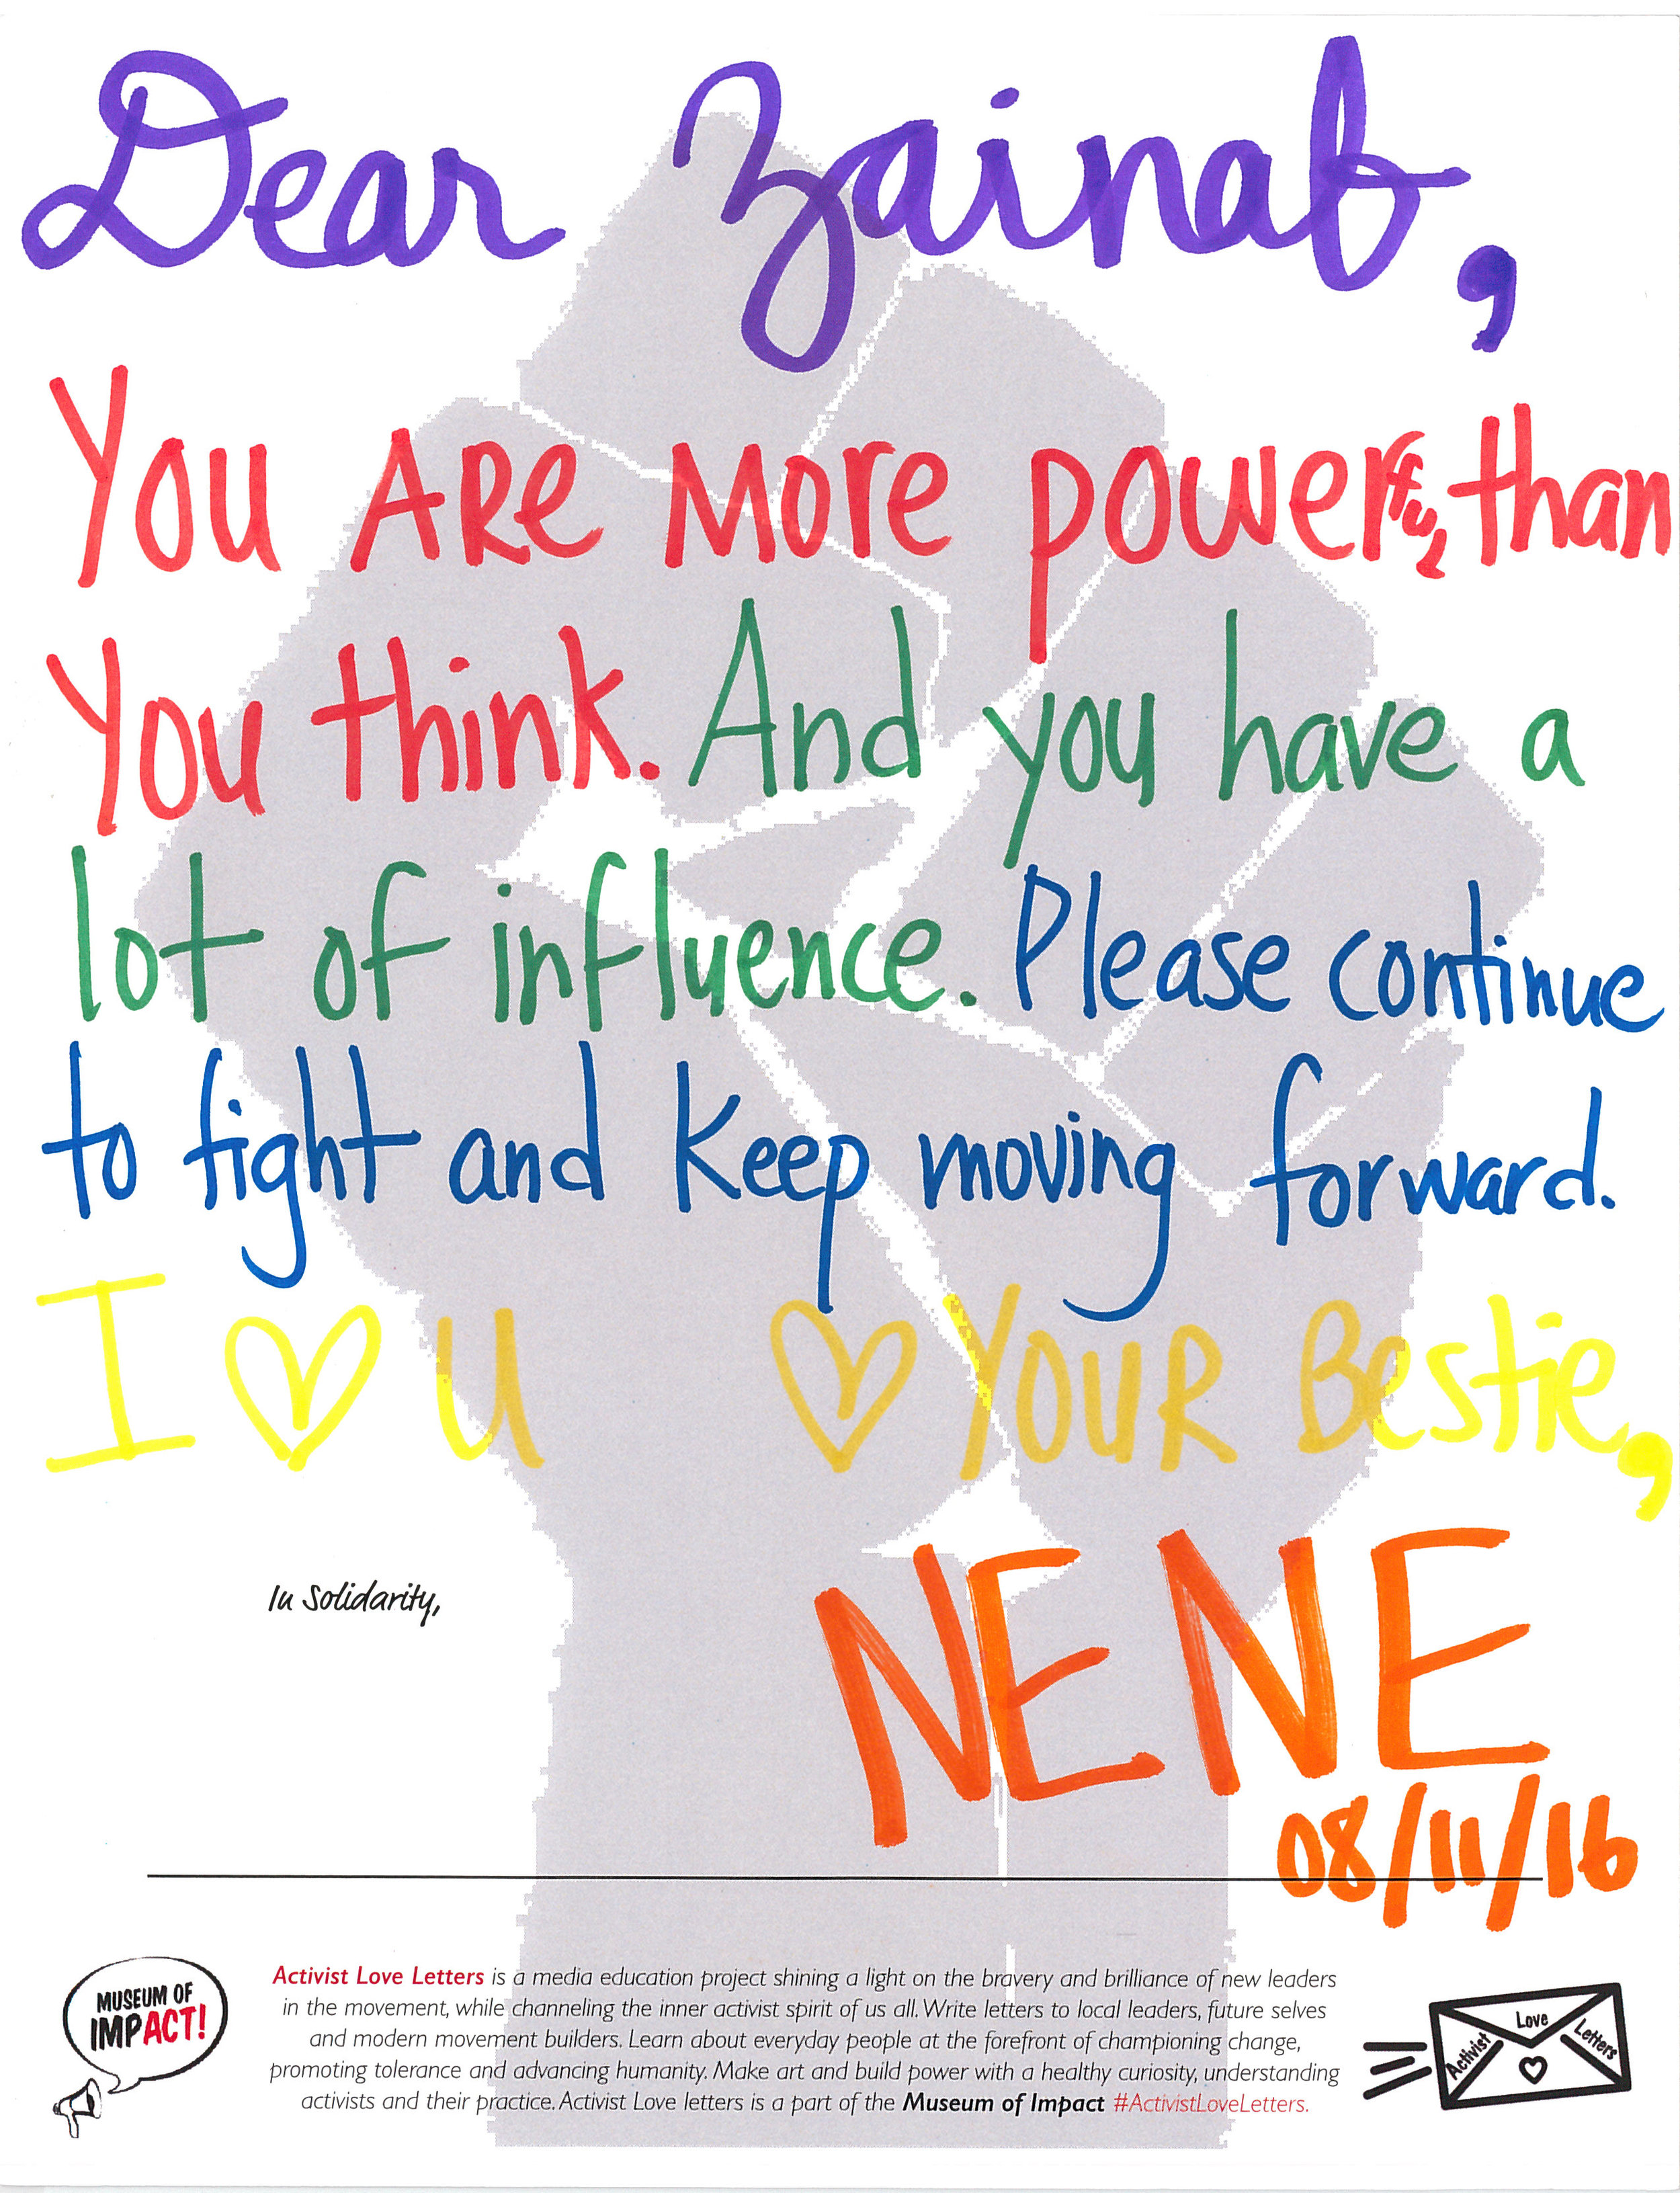 Dear Zainab,
You ARe More powerful than
You think. And you have a
lot of influence. Please continue
to fight and keep moving forward.
I ♡ U ♡ YOUR Bestie,
In Solidarity,
NENE
08/11/16
MUSEUM OF
IMPACT!
Activist Love Letters is a media education project shining a light on the bravery and brilliance of new leaders
in the movement, while channeling the inner activist spirit of us all. Write letters to local leaders, future selves
and modern movement builders. Learn about everyday people at the forefront of championing change,
promoting tolerance and advancing humanity. Make art and build power with a healthy curiosity, understanding
activists and their practice. Activist Love letters is a part of the Museum of Impact #ActivistLoveLetters.
Activist Love Letters